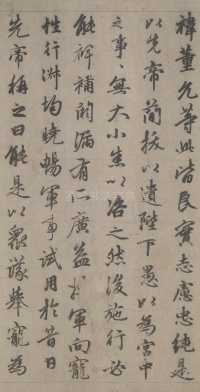 禕董允等此皆良實志慮忠純是
以先帝簡拔以遺陛下愚以為宮中
之事〻無大小悉以咨之然後施行必
能裨補闕漏有所廣益將軍向寵
性行淑均曉暢軍事試用於昔日
先帝稱之曰能是以衆議舉寵為